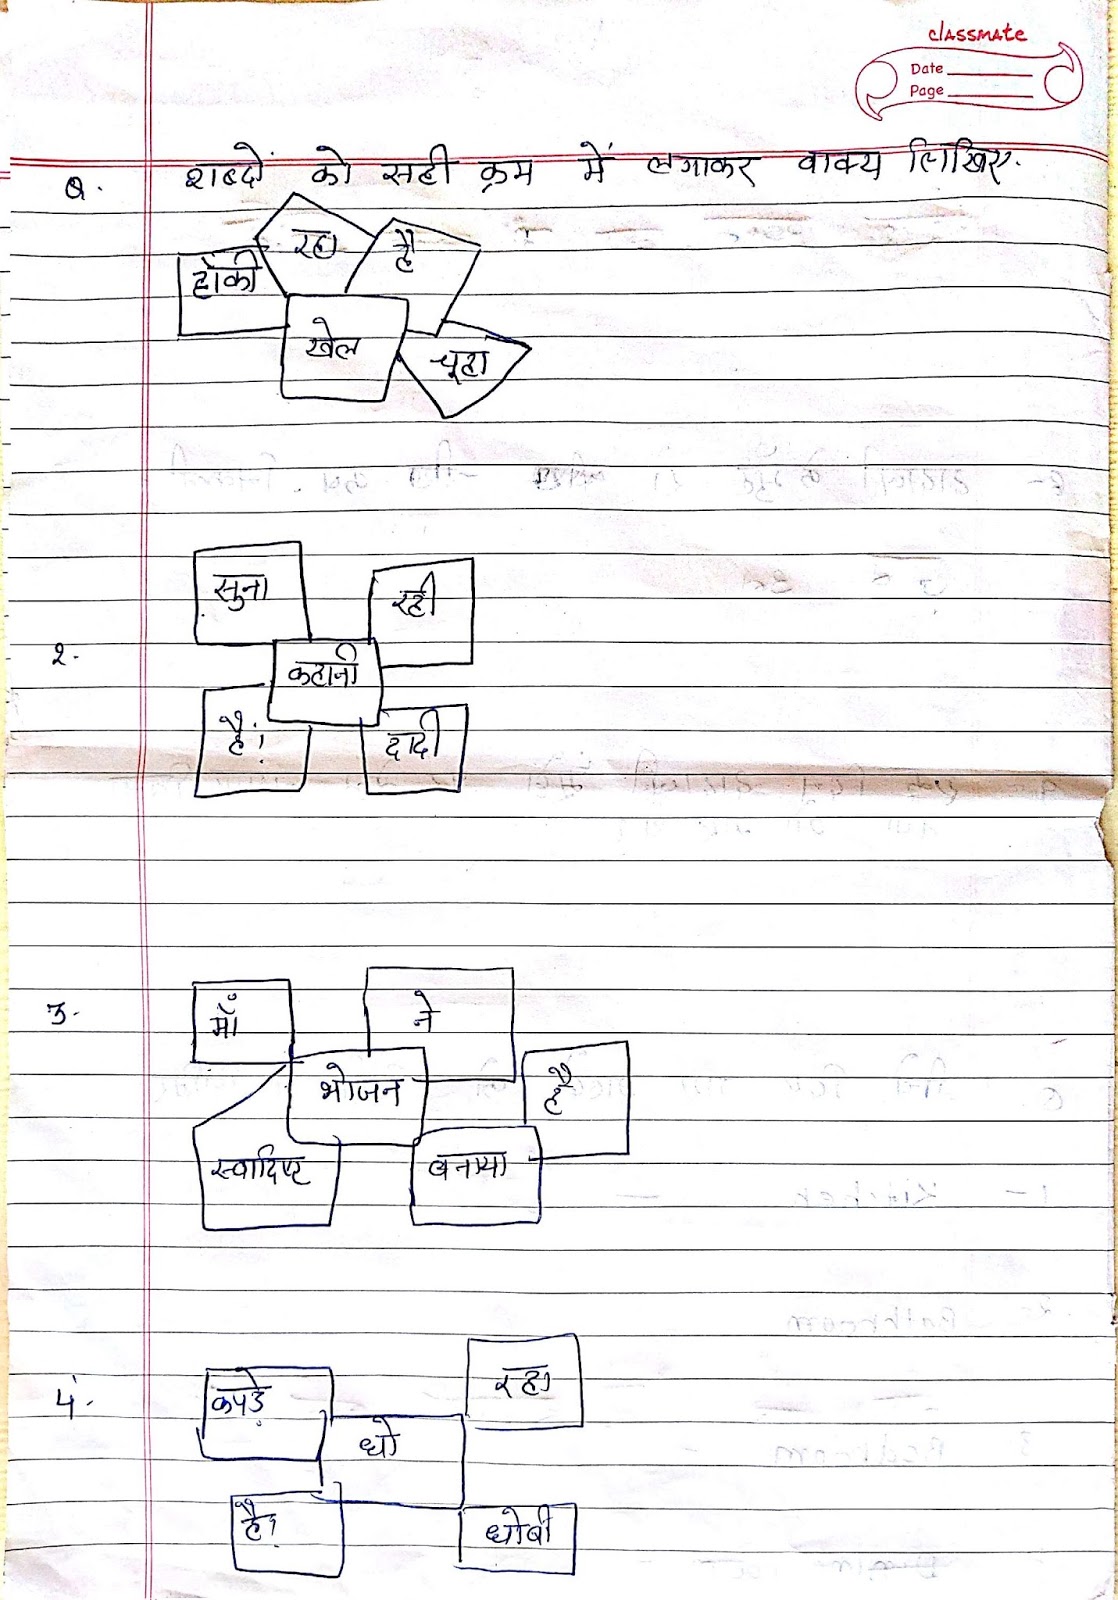 classmate
Date
Page
Q. शब्दों को सही क्रम में लगाकर वाक्य लिखिए.
रहा है
हॉकी
खेल चूहा
सुना रही
2. कहानी
हैं। दादी
3. माँ ने
भोजन है
स्वादिष्ट बनाया
4. कपड़े रहा
धो
है। धोबी